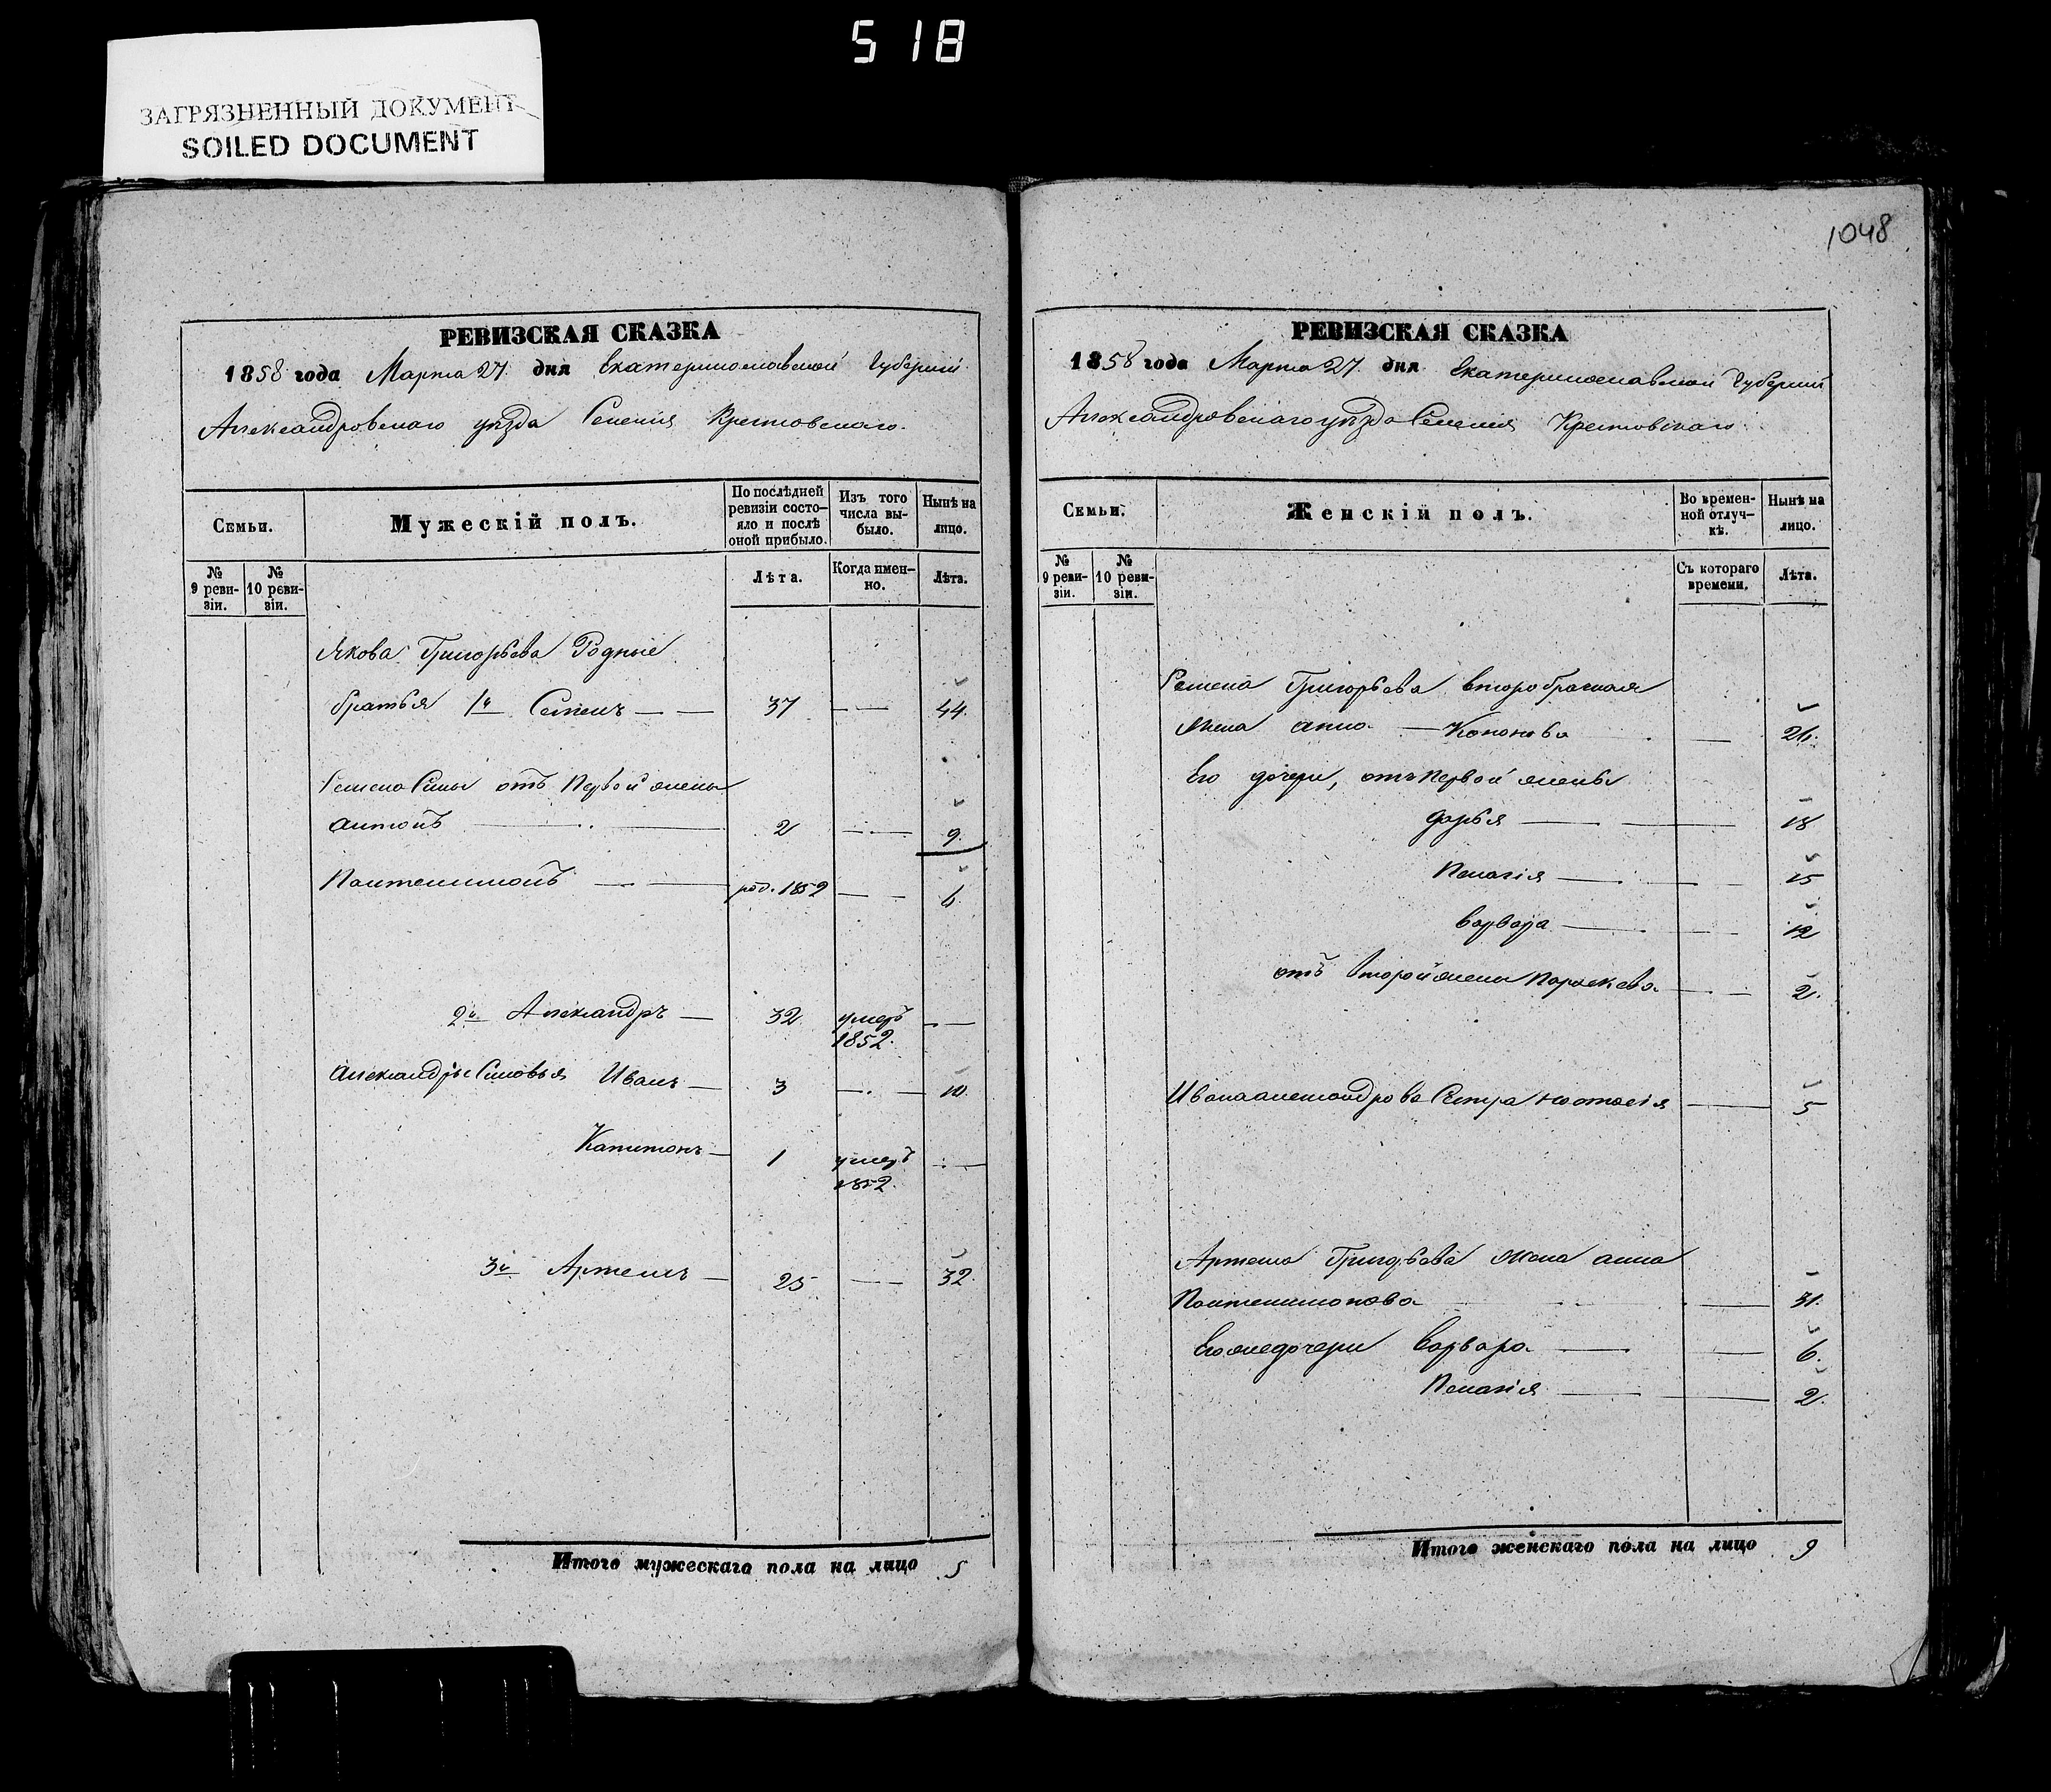 518
ЗАГРЯЗНЕННЫЙ ДОКУМЕНТ
SOILED DOCUMENT
РЕВИЗСКАЯ СКАЗКА
1858 года Марта 27. дня Екатеринославской Губерніи
Александровскаго уѣзда Селенія Крестовскаго.
Семьи.
Мужескій полъ.
По послѣдней ревизіи состояло и послѣ оной прибыло.
Изъ того числа выбыло.
Нынѣ на лицо.
№ 9 ревизіи.
№ 10 ревизіи.
Лѣта.
Когда именно.
Лѣта.
Якова Григорьева Родные
братья 1й Семенъ — — 37 — — 44.
Семена Сины отъ Первой жены
Антонъ — 2 — 9.
Пантелимонъ — — род. 1852 — — 6
2й Александръ — 32 умеръ 1852. — —
Александры Синовья Иванъ — 3 — 10.
Капитонъ — 1 умеръ 1852. — —
3й Артемъ — 25 — — 32.
Итого мужескаго пола на лицо 5
1048
РЕВИЗСКАЯ СКАЗКА
1858 года Марта 27. дня Екатеринославской Губерніи
Александровскаго уѣзда Селенія Крестовскаго
Семьи.
Женскій полъ.
Во временной отлучкѣ.
Нынѣ на лицо.
№ 9 ревизіи.
№ 10 ревизіи.
Съ котораго времени.
Лѣта.
Семена Григорьева второбрачная
жена Анна — Кононова — 26.
Его дочери, отъ первой жены
Дарья — — 18
Пелагія — — 15
Варвара — — 12
отъ второй жены Параскева — — 2.
Ивана Александрова Сестра Настасія — 5
Артема Григорьева жена Анна
Пантелимонова — 31.
Его же дочери Варвара — — 6.
Пелагія — — 2.
Итого женскаго пола на лицо 9